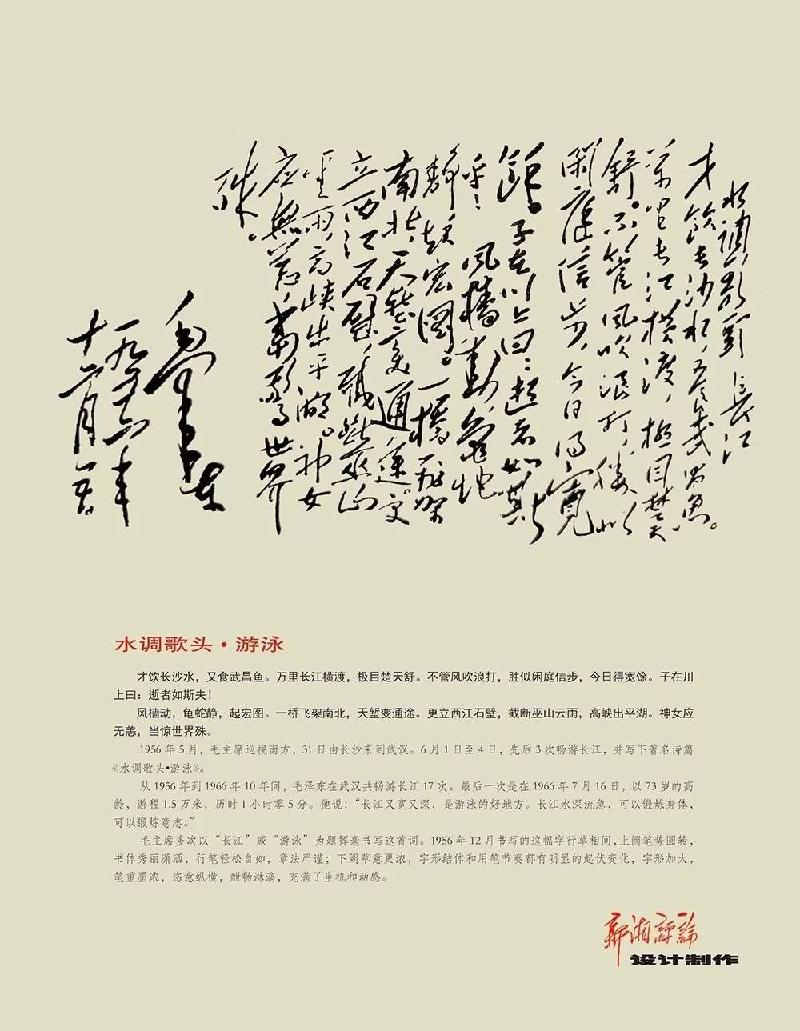 水調歌頭 長江
才飲长沙水,又食武昌魚。
萬里长江横渡,极目楚天
舒。不管风吹浪打,勝似
閑庭信步,今日得寬
餘。子在川上曰:逝者如斯
风樯動,龟蛇
静,起宏圖。一橋飞架
南北,天塹变通途。更
立西江石壁,截断巫山
雲雨,高峡出平湖。神女
应無恙,當驚世界
殊。
毛泽东
一九五六年
十二月五日
水调歌头·游泳
才饮长沙水，又食武昌鱼。万里长江横渡，极目楚天舒。不管风吹浪打，胜似闲庭信步，今日得宽馀。子在川
上曰：逝者如斯夫！
风樯动，龟蛇静，起宏图。一桥飞架南北，天堑变通途。更立西江石壁，截断巫山云雨，高峡出平湖。神女应
无恙，当惊世界殊。
1956年5月，毛主席巡视南方，31日由长沙来到武汉。6月1日至4日，先后3次畅游长江，并写下著名诗篇
《水调歌头•游泳》。
从1956年到1966年10年间，毛泽东在武汉共畅游长江17次。最后一次是在1966年7月16日，以73岁的高
龄，游程1.5万米，历时1小时零5分。他说：“长江又宽又深，是游泳的好地方。长江水深流急，可以锻炼身体，
可以锻炼意志。”
毛主席多次以“长江”或“游泳”为题挥毫书写这首词。1956年12月书写的这幅字行草相间，上阕笔势圆转，
书作秀丽潇洒，行笔轻松自如，章法严谨；下阕草意更浓，字形结体和用笔节奏都有明显的起伏变化，字形加大，
笔重墨浓，恣意纵横，酣畅淋漓，充满了生机和动感。
新湘評論
设计制作